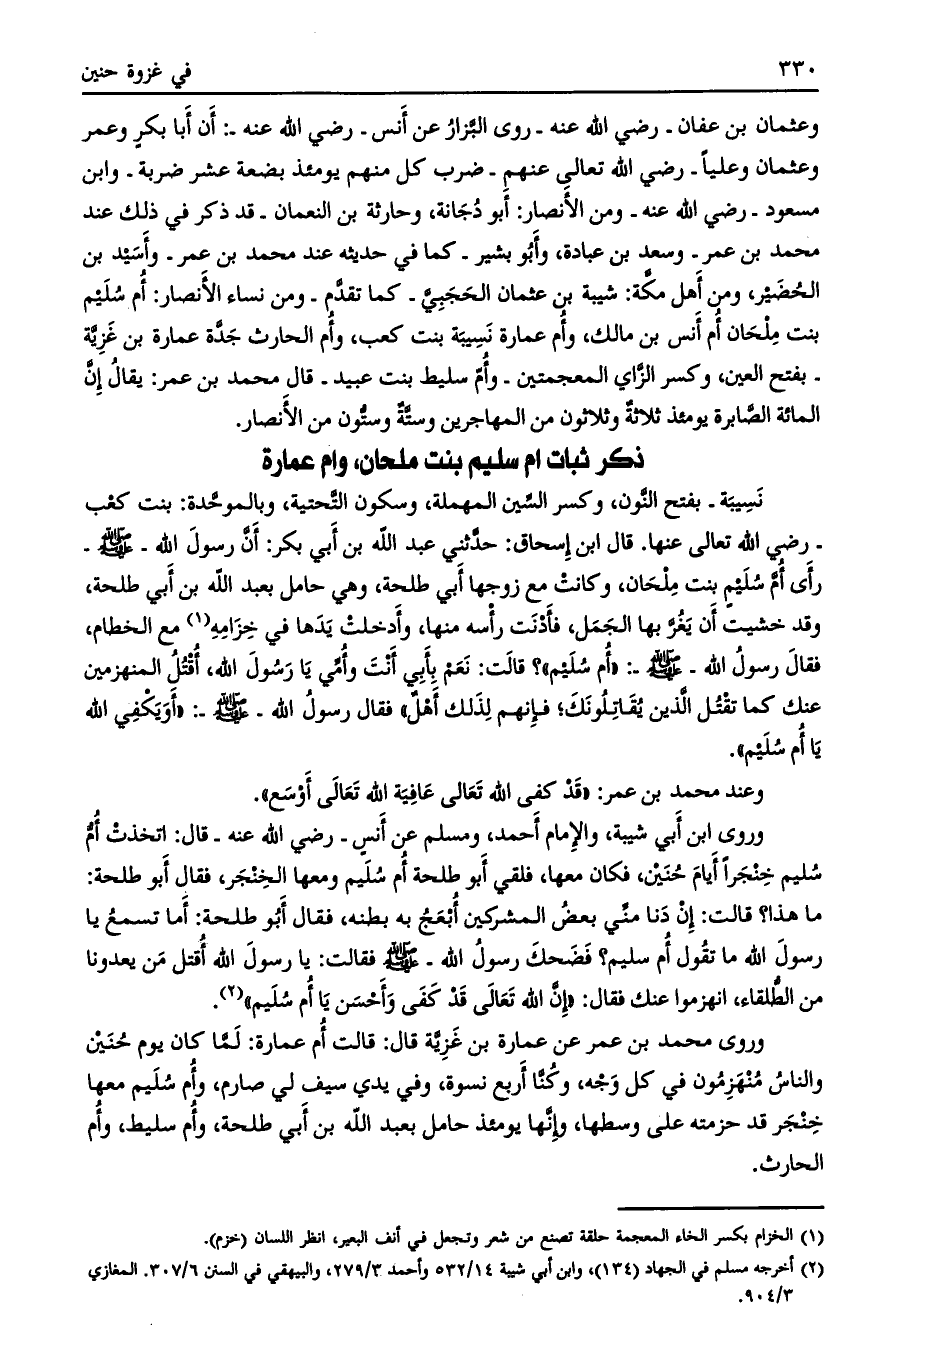 ٣٣٠
في غزوة حنين
وعثمان بن عفان ـ رضي الله عنه ـ روى البَّزارُ عن أَنس ـ رضي الله عنه ـ: أَن أَبا بكرٍ وعمر
وعثمان وعلياً ـ رضي الله تعالى عنهم ـ ضرب كل منهم يومئذ بضعة عشر ضربة ـ وابن
مسعود ـ رضي الله عنه ـ ومن الأَنصار: أبو دُجَانة، وحارثة بن النعمان ـ قد ذكر في ذلك عند
محمد بن عمر ـ وسعد بن عبادة، وأَبُو بشير ـ كما في حديثه عند محمد بن عمر ـ وأُسَيْد بن
الحُضَيْر، ومن أَهل مكَّة: شيبة بن عثمان الحَجَبِيَّ ـ كما تقدَّم ـ ومن نساء الأَنصار: أُم سُلَيْم
بنت مِلْحَان أُم أَنس بن مالك، وأُم عمارة نَسِيبَة بنت كعب، وأُم الحارث جَدَّة عمارة بن غَزِيَّة
ـ بفتح العين، وكسر الزَّاي المعجمتين ـ وأُمّ سليط بنت عبيد ـ قال محمد بن عمر: يقالُ إِنَّ
المائة الصَّابرة يومئذ ثلاثةٌ وثلاثون من المهاجرين وستَّةٌ وستُّون من الأَنصار.
ذكر ثبات ام سليم بنت ملحان، وام عمارة
نَسِيبَة ـ بفتح النُّون، وكسر السِّين المهملة، وسكون التَّحتية، وبالموحَّدة: بنت كعْب
ـ رضي الله تعالى عنها. قال ابن إِسحاق: حدَّثني عبد اللّه بن أَبي بكر: أَنَّ رسولَ الله ـ ﷺ ـ
رأَى أُمَّ سُلَيْمٍ بنت مِلْحَان، وكانتْ مع زوجها أَبي طلحة، وهي حامل بعبد اللّه بن أَبي طلحة،
وقد خشيت أَن يَعُزَّ بها الجَمَل، فأَدْنَت رأْسه منها، وأَدخلتْ يَدَها في خِزَامِهِ(١) مع الخطام،
فقالَ رسولُ الله ـ ﷺ ـ: «أُم سُلَيْم»؟ قالَت: نَعَمْ بِأَبِي أَنْتَ وأُمِّي يَا رَسُولَ الله، أُقْتُلُ المنهزمين
عنك كما تقْتُل الَّذين يُقَاتِلُونَكَ؛ فإنهم لِذَلك أَهْلٌ» فقال رسولُ الله ـ ﷺ ـ: «أَوَيَكْفِي الله
يَا أُم سُلَيْم».
وعند محمد بن عمر: «قَدْ كفى الله تَعَالى عَافِيَة الله تَعَالَى أَوْسَع».
وروى ابن أَبي شيبة، والإمام أَحمد، ومسلم عن أَنسٍ ـ رضي الله عنه ـ قال: اتخذتْ أُمُّ
سُليم خِنْجَراً أَيامَ حُنَيْن، فكان معها، فلقي أَبو طلحة أُم سُلَيم ومعها الخِنْجَر، فقال أَبو طلحة:
ما هذا؟ قالت: إِنْ دَنا منَّي بعضُ المشركين أَبْعَجُ به بطنه، فقال أَبُو طلحة: أَما تسمعُ يا
رسولَ الله ما تقُول أُم سليم؟ فَضَحكَ رسولُ الله ـ ﷺ فقالت: يا رسولَ الله أَقتل مَن يعدونا
من الطُّلقاء، انهزموا عنك فقال: «إِنَّ الله تَعَالَى قَدْ كَفَى وَأَحْسَن يَا أُم سُلَيم»(٢).
وروى محمد بن عمر عن عمارة بن غَزِيَّة قال: قالت أُم عمارة: لَمَّا كان يوم حُنَيْن
والناسُ مُنْهَزِمُون في كل وَجْه، وكُنَّا أَربع نسوة، وفي يدي سيف لي صارم، وأُم سُلَيم معها
خِنْجَر قد حزمته على وسطها، وإِنَّها يومئذ حامل بعبد اللّه بن أَبي طلحة، وأُم سليط، وأُم
الحارث.
(١) الخزام بكسر الخاء المعجمة حلقة تصنع من شعر وتجعل في أنف البعير، انظر اللسان (خزم).
(٢) أخرجه مسلم في الجهاد (١٣٤)، وابن أبي شيبة ٥٣٢/١٤ وأحمد ٢٧٩/٣، والبيهقي في السنن ٣٠٧/٦. المغازي
٩٠٤/٣.